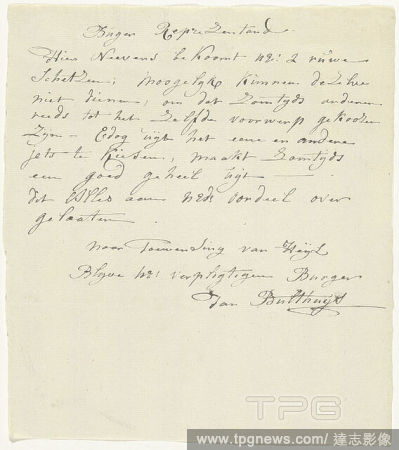 Burger Representant
Hier Neevens bekoomt UE: 2 ruuwe
Schetzen; moogelyk kunnen dezelve
niet dienen, om dat Zomtyds anderen
reeds tot het Zelfde voorwerp gekoozen
Zyn — Edog uyt het eene en andere
iets te kiesen, maakt Zomtyds
een goed geheel uyt —
dit Alles aan UEd: oordeel over
gelaaten
naar Toewensing van Heyl
Blyve UE: verpligtigen Burger
Jan Bulthuys
TPG
www.tpgnews.com | 達志影像